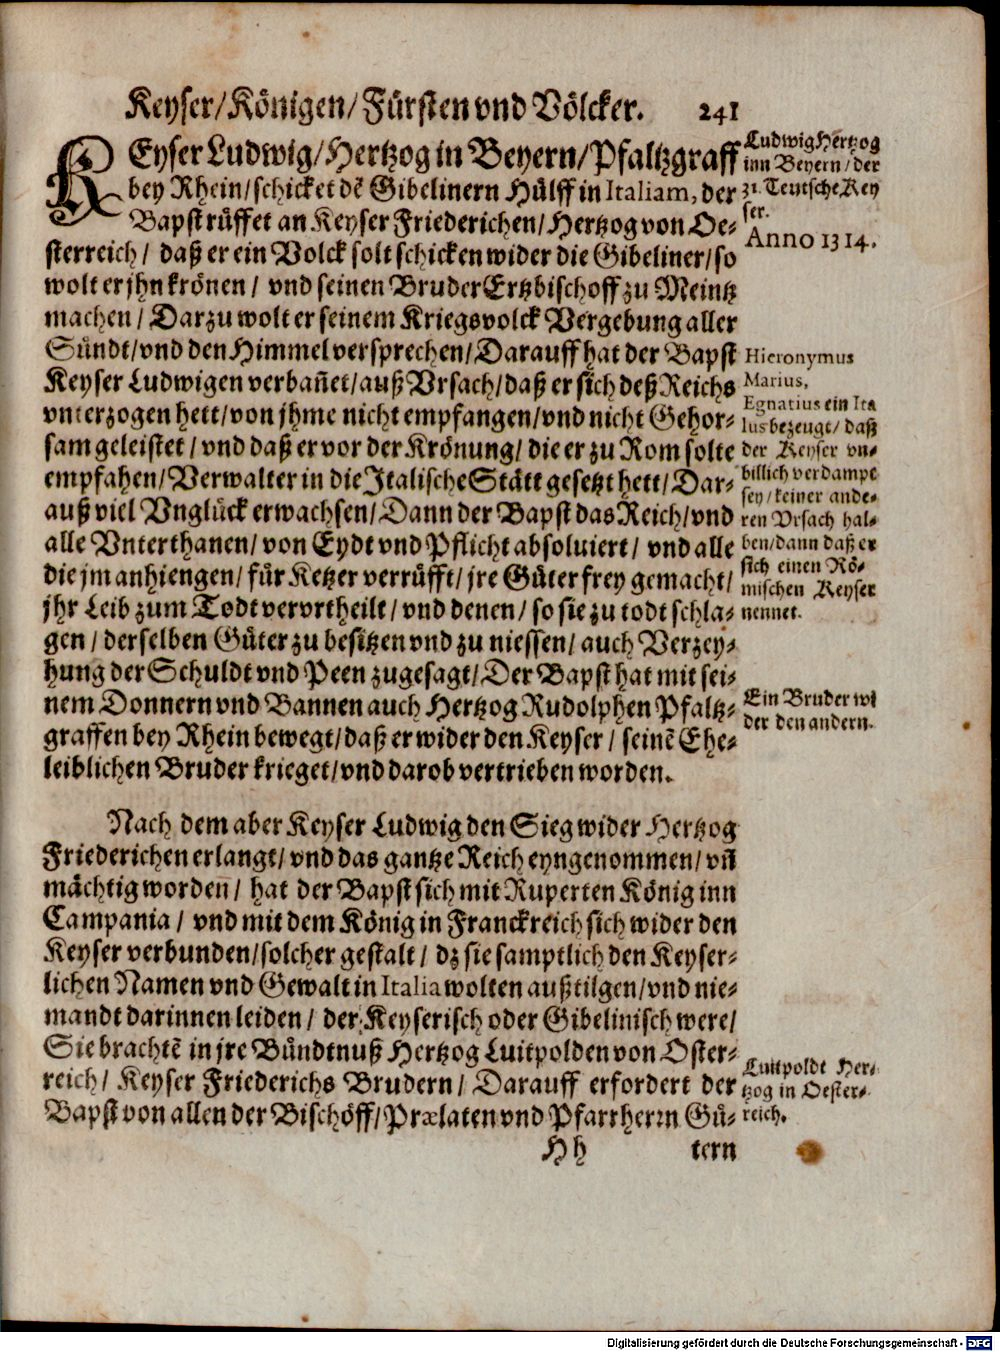 Keyser/Königen/Fürsten vnd Völcker. 241
KEyser Ludwig/Hertzog in Beyern/Pfaltzgraff
bey Rhein/schicket dẽ Gibelinern Hülff in Italiam, der
Bapst rüffet an Keyser Friederichen/Hertzog von Oe-
sterreich/ daß er ein Volck solt schicken wider die Gibeliner/so
wolt er jhn krönen/ vnd seinen Bruder Ertzbischoff zu Meintz
machen/ Darzu wolt er seinem Kriegsvolck Vergebung aller
Sündt/vnd den Himmel versprechen/Darauff hat der Bapst
Keyser Ludwigen verbañet/auß Vrsach/daß er sich deß Reichs
vnterzogen hett/von jhme nicht empfangen/vnd nicht Gehor-
sam geleistet/vnd daß er vor der Krönung/die er zu Rom solte
empfahen/Verwalter in die Italische Stätt gesetzt hett/Dar-
auß viel Vnglück erwachsen/Dann der Bapst das Reich/vnd
alle Vnterthanen/von Eydt vnd Pflicht absoluiert/ vnd alle
die jm anhiengen/für Ketzer verrüfft/jre Güter frey gemacht/
jhr Leib zum Todt vervrtheilt/vnd denen/so sie zu todt schla-
gen/derselben Güter zu besitzen vnd zu niessen/auch Verzey-
hung der Schuldt vnd Peen zugesagt/Der Bapst hat mit sei-
nem Donnern vnd Bannen auch Hertzog Rudolphen Pfaltz-
graffen bey Rhein bewegt/daß er wider den Keyser/ seinẽ Ehe-
leiblichen Bruder krieget/vnd darob vertrieben worden.
Nach dem aber Keyser Ludwig den Sieg wider Hertzog
Friederichen erlangt/vnd das gantze Reich eyngenommen/vñ
mächtig worden/ hat der Bapst sich mit Ruperten König inn
Campania/ vnd mit dem König in Franckreich sich wider den
Keyser verbunden/solcher gestalt/ dz sie samptlich den Keyser-
lichen Namen vnd Gewalt in Italia wolten außtilgen/vnd nie-
mandt darinnen leiden/ der Keyserisch oder Gibelinisch were/
Sie brachtẽ in jre Bündtnuß Hertzog Luitpolden von Oster-
reich/ Keyser Friederichs Brudern/ Darauff erfordert der
Bapst von allen der Bischöff/Prælaten vnd Pfarrherrn Gü-
Hh tern
Ludwig Hertzog
inn Beyern/der
31. Teutsche Key
ser.
Anno 1314.
Hieronymus
Marius,
Egnatius ein Ita
lus bezeugt/ daß
der Keyser vn-
billich verdampt
sey/keiner ande-
ren Vrsach hal-
ben/dann daß er
sich einen Rö-
mischen Keyser
nennet.
Ein Bruder wi
der den andern.
Luitpoldt Her-
tzog in Oester-
reich.
Digitalisierung gefördert durch die Deutsche Forschungsgemeinschaft - DFG